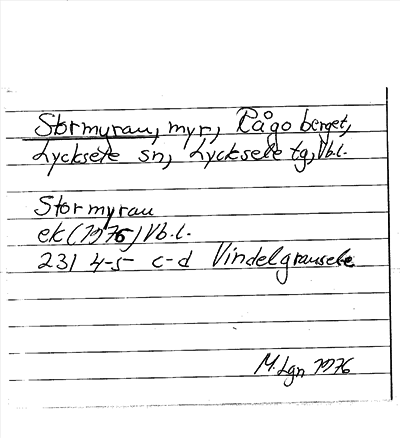 Stormyrau, myr, Rågoberget,
Lycksele sn, Lycksele tg, Vb.l.
Stormyrau
ek (1976) Vb.l.
231 4-5 c-d Vindelgransele
M. Lgn 1976